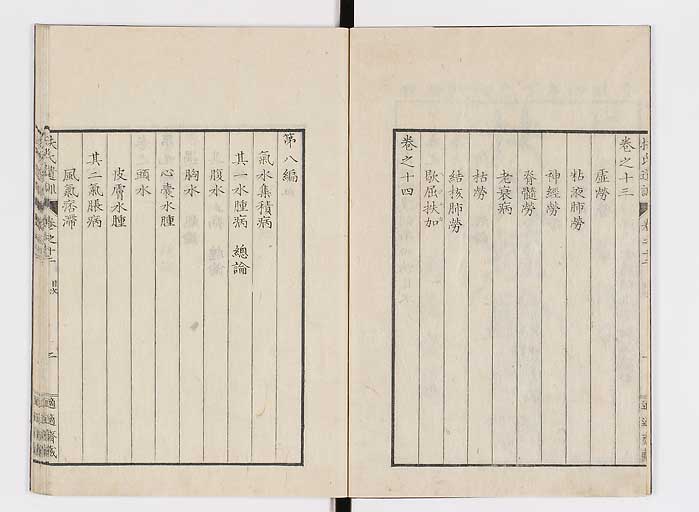 卷之十三
虚勞
粘液肺勞
神經勞
脊髓勞
老衰病
枯勞
結核肺勞
歇屈扶加
卷之十四
第八編
氣水集積病
其一水腫病 總論
腹水
胸水
心囊水腫
頭水
皮膚水腫
其二氣脹病
風氣痞滯
扶氏遺訓 卷之十三 目次 二 適適齋藏